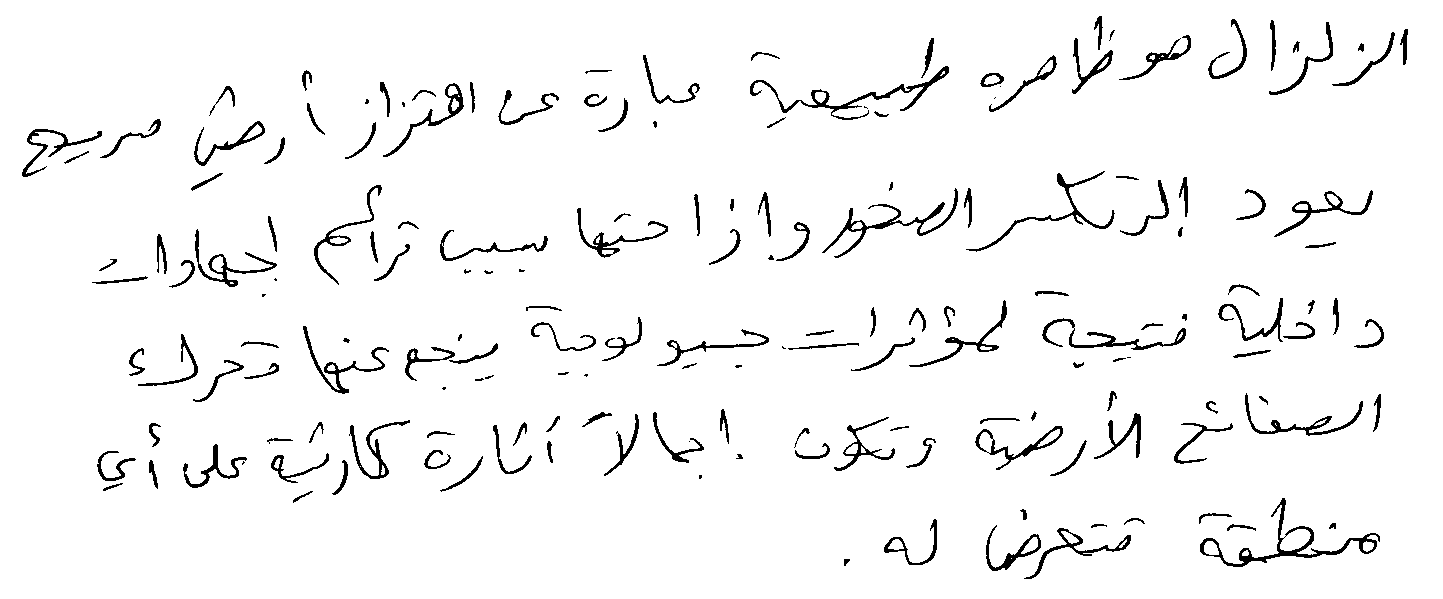 الزلزال هو ظاهره طبيعية عبارة عن اهتزاز أرضي سريع
يعود إلى تكسر الصخور وإزاحتها بسبب تراكم إجهادات
داخلية نتيجة لمؤثرات جيولوجية ينجم عنها تحرك
الصفائح الأرضية وتكون إجمالاً آثارة كارثية على أي
منطقة تتعرض له .